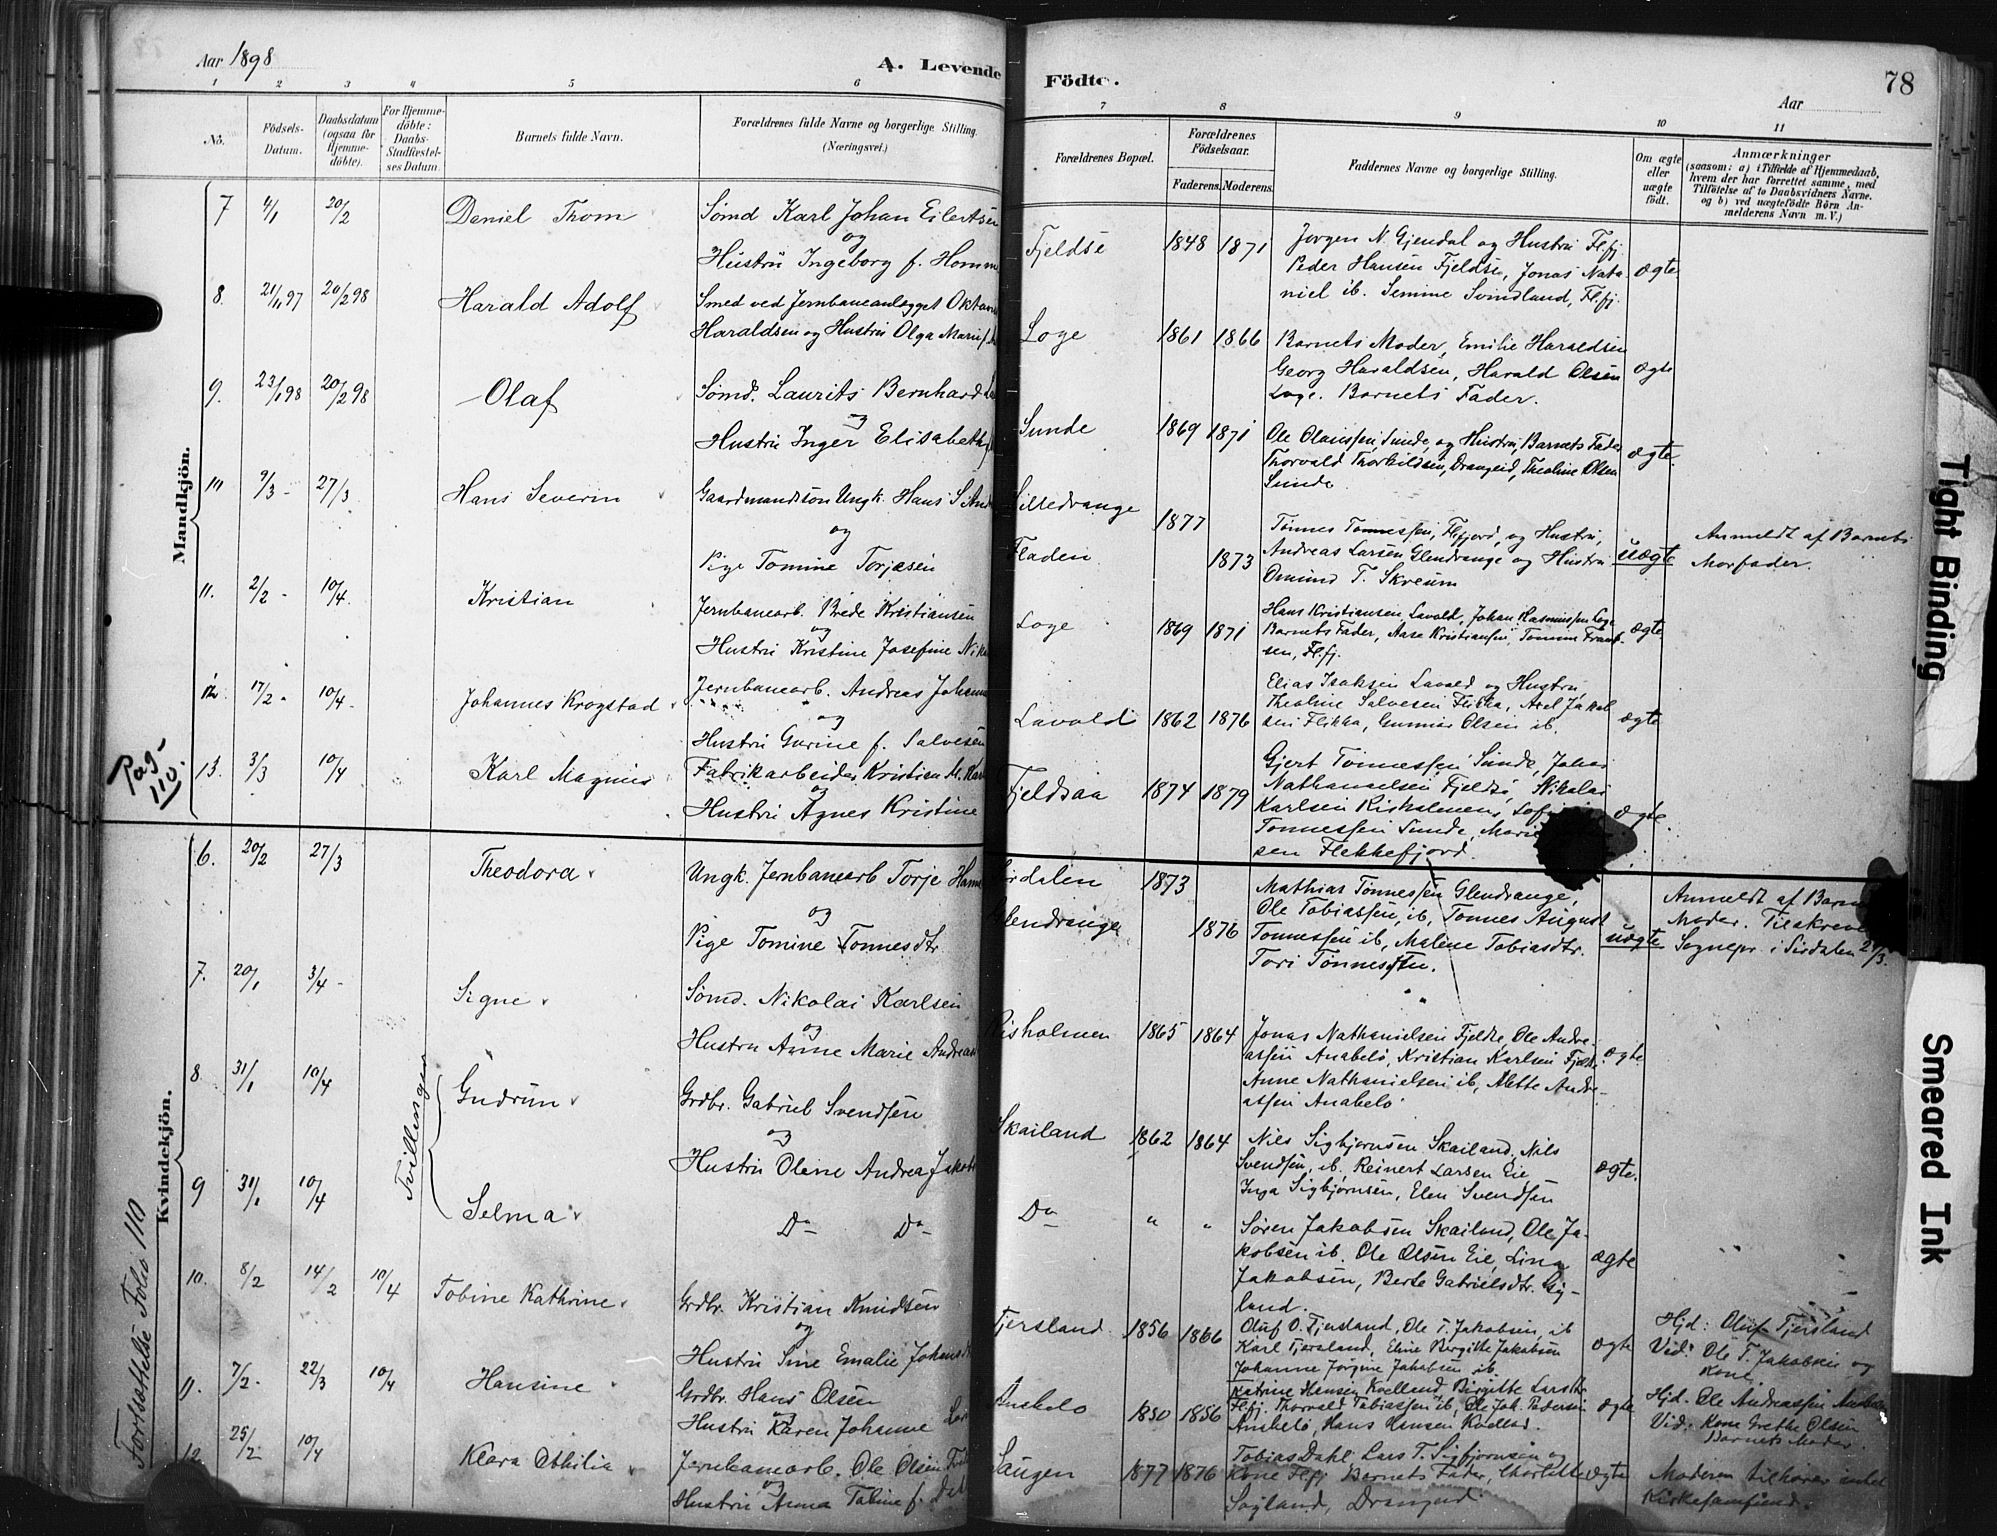 Aar 1898
A. Levende Födte.
78
Aar
1 2 3 4 5 6 7 8 9 10 11
No.
Födsels-Datum.
Daabsdatum (ogsaa for Hjemme-döbte).
For Hjemme-döbte: Daabs-Stadfæstel-ses Datum.
Barnets fulde Navn.
Forældrenes fulde Navne og borgerlige Stilling.
(Næringsvei.)
Forældrenes Bopæl.
Forældrenes Födselsaar.
Faderens. Moderens.
Faddernes Navne og borgerlige Stilling.
Om ægte eller uægte födt.
Anmærkninger
(saasom: a) i Tilfælde af Hjemmedaab,
hvem der har forrettet samme, med
Tilföielse af to Daabsvidners Navne.
og b) ved uægtefödte Börn An-
melderens Navn m. V.)
Mandkjön.
7 4/1 20/2 Daniel Thom
Sömd Karl Johan Eilertsen
og
Hustru Ingeborg f. Homm
Fjeldse 1848 1871
Jørgen N. Gjendal og Hustru Fl.fj.
Peder Hansen Fjeldse, Jonas Nata-
niel ib. Semine Svindland, Fl.fj.
ægte
8. 21/11 97 20/2 98 Harald Adolf
Smed ved Jernbaneanlægget Oktav
Haraldsen og Hustru Olga Marie f.
Loge 1861 1866
Barnets Moder, Emilie Haraldsen
Georg Haraldsen, Harald Olsen
Loge. Barnets Fader.
ægte
9. 23/1 98 20/2 98 Olaf
Sömd. Laurits Bernhard
og
Hustru Inger Elisabeth
Sunde 1869 1871
Ole Olaussen Sunde, og Hustru, Barnets Fader
Thorvald Thorkildsen, Drangeid, Theoline Olsen
Sunde
ægte.
10 9/3 - 27/3 Hans Severin
Gaardmandssön Ungk. Hans S. And
og
Pige Tomine Torjesen
Silledrange 1877
Fladen 1873
Tönnes Tönnessen, Fl.fjord, og Hustru,
Andreas Larsen Glendrange og Hustru
Omund T. Skreum
uægte
Anmeldt af Barnets
Morfader.
11. 2/2 - 10/4. Kristian
Jernbanearb. Brede Kristiansen
og
Hustru Kristine Josefine Nik
Loge 1869 1871
Hans Kristiansen Lavold, Johan Rasmussen Loge
Barnets Fader, Aase Kristiansen, Tomine
sen, Fl.fj.
ægte
12. 17/2 - 10/4 - Johannes Krogstad
Jernbanearb. Andreas Johann
og
Hustru Gurine f. Salvesen
Lavold 1862 1876
Elias Isaksen Lavold og Hustru
Theoline Salvesen Flikka, Axel Jakob
sen Flikka, Gunnar Olsen ib.
ægte
Pag-
110.
13. 3/3 10/4 Karl Magnus
Fabrikarbeider Kristian M. Kar
og
Hustru Agnes Kristine
Fjeldsaa 1874 1879
Gjert Tönnessen Sunde, Johas
Nathanaelsen Fjeldse, Nikolai
Karlsen Risholmen, Sofi
Tönnessen Sunde, Marie
sen Flekkefjord.
ægte.
Kvindekjön.
6. 20/2 27/3 Theodora
Ungk. Jernbanearb Torje Hans
og
Pige Tomine Tonnesdtr
Sirdalen 1873
Glendrange 1876
Mathias Tönnessen Glendrange,
Ole Tobiassen, ib, Tönnes August
Tönnessen ib, Malene Tobiasdtr.
Tori Tönnesdtr.
uægte
Anmeldt af Barn
Moder. Tilskreve
Sognepr. i Sirdalen 2/3.
7. 20/1 3/4 - Signe
Sömd. Nikolai Karlsen
og
Hustru Anne Marie Andreas
Risholmen 1865 1864
Jonas Nathanielsen Fjeldse, Ole Andre-
assen Anabelö, Kristian Karlsen Fjelds
Anne Nathanielsen ib, Alette Andre-
assen Anabelö
ægte
Tvillinger
8. 31/1 10/4 Gudrun
Grdbr. Gabriel Svendsen
og
Hustru Olene Andrea Jakob
Skailand 1862 1864
Nils Sigbjørnsen Skailand, Nils
Svendsen, ib. Reinert Larsen Eie
Inga Sigbjørnsen, Elen Svendsen
ægte.
9 31/1 10/4 Selma
Do Do
Do " "
Søren Jakobsen Skailand, Ole Ja-
kobsen ib. Ole Olsen Eie, Lina
Jakobsen, Berte Gabrielsdtr. Gy-
land.
ægte
10. 8/2 14/2 10/4 Tobine Kathrine
Grdbr. Kristian Knudsen
og
Hustru Sine Emalie Johans
Tjersland 1856 1866
Oluf O. Tjersland, Ole T. Jakobsen, ib
Karl Tjersland, Eline Birgitte Jakobsen
Johanne Jörgine Jakobsen ib.
ægte
Hjd: Oluf Tjersland
Vid: Ole T. Jakobsen og
Kone
11. 7/2 - 22/3 10/4 Hansine
Grdbr. Hans Olsen
og
Hustru Karen Johanne
Anabelö 1850 1856
Katrine Hansen Kvelland, Birgitte Larsdtr
Fl.fj. Thorvald Tobiassen ib, Ole Joh. Pedersen
Anabelö, Hans Hansen Kvelland.
ægte
Hjd. Ole Andreassen Anabelö
Vid: Kone Grethe Olsen
Barnets Moder.
12. 25/2 10/4 Klara Othilia
Jernbanearb. Ole Olsen
og
Hustru Anna Tobine f.
Laugen 1877 1876
Tobias Dahl, Lars T. Sigbjørnsen og
Kone Fl.fj. Barnets Fader, Charlotte
Søyland, Drangeid
ægte
Moderen tilhører intet
Kirkesamfund.
Fortsættelse Folio 110
Tight Binding
Smeared Ink